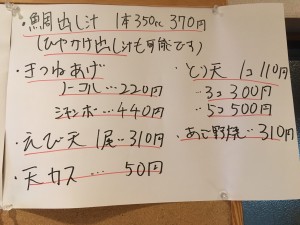 ・鯛出し汁 1本350cc 370円
(ひやかけ出し汁も可能です)
・きつねあげ
ノーマル…220円
ジャンボ…440円
・えび天 1尾…310円
・天カス… 50円
・とり天 1コ 110円
〃3コ 300円
〃5コ 500円
・あご野焼…310円